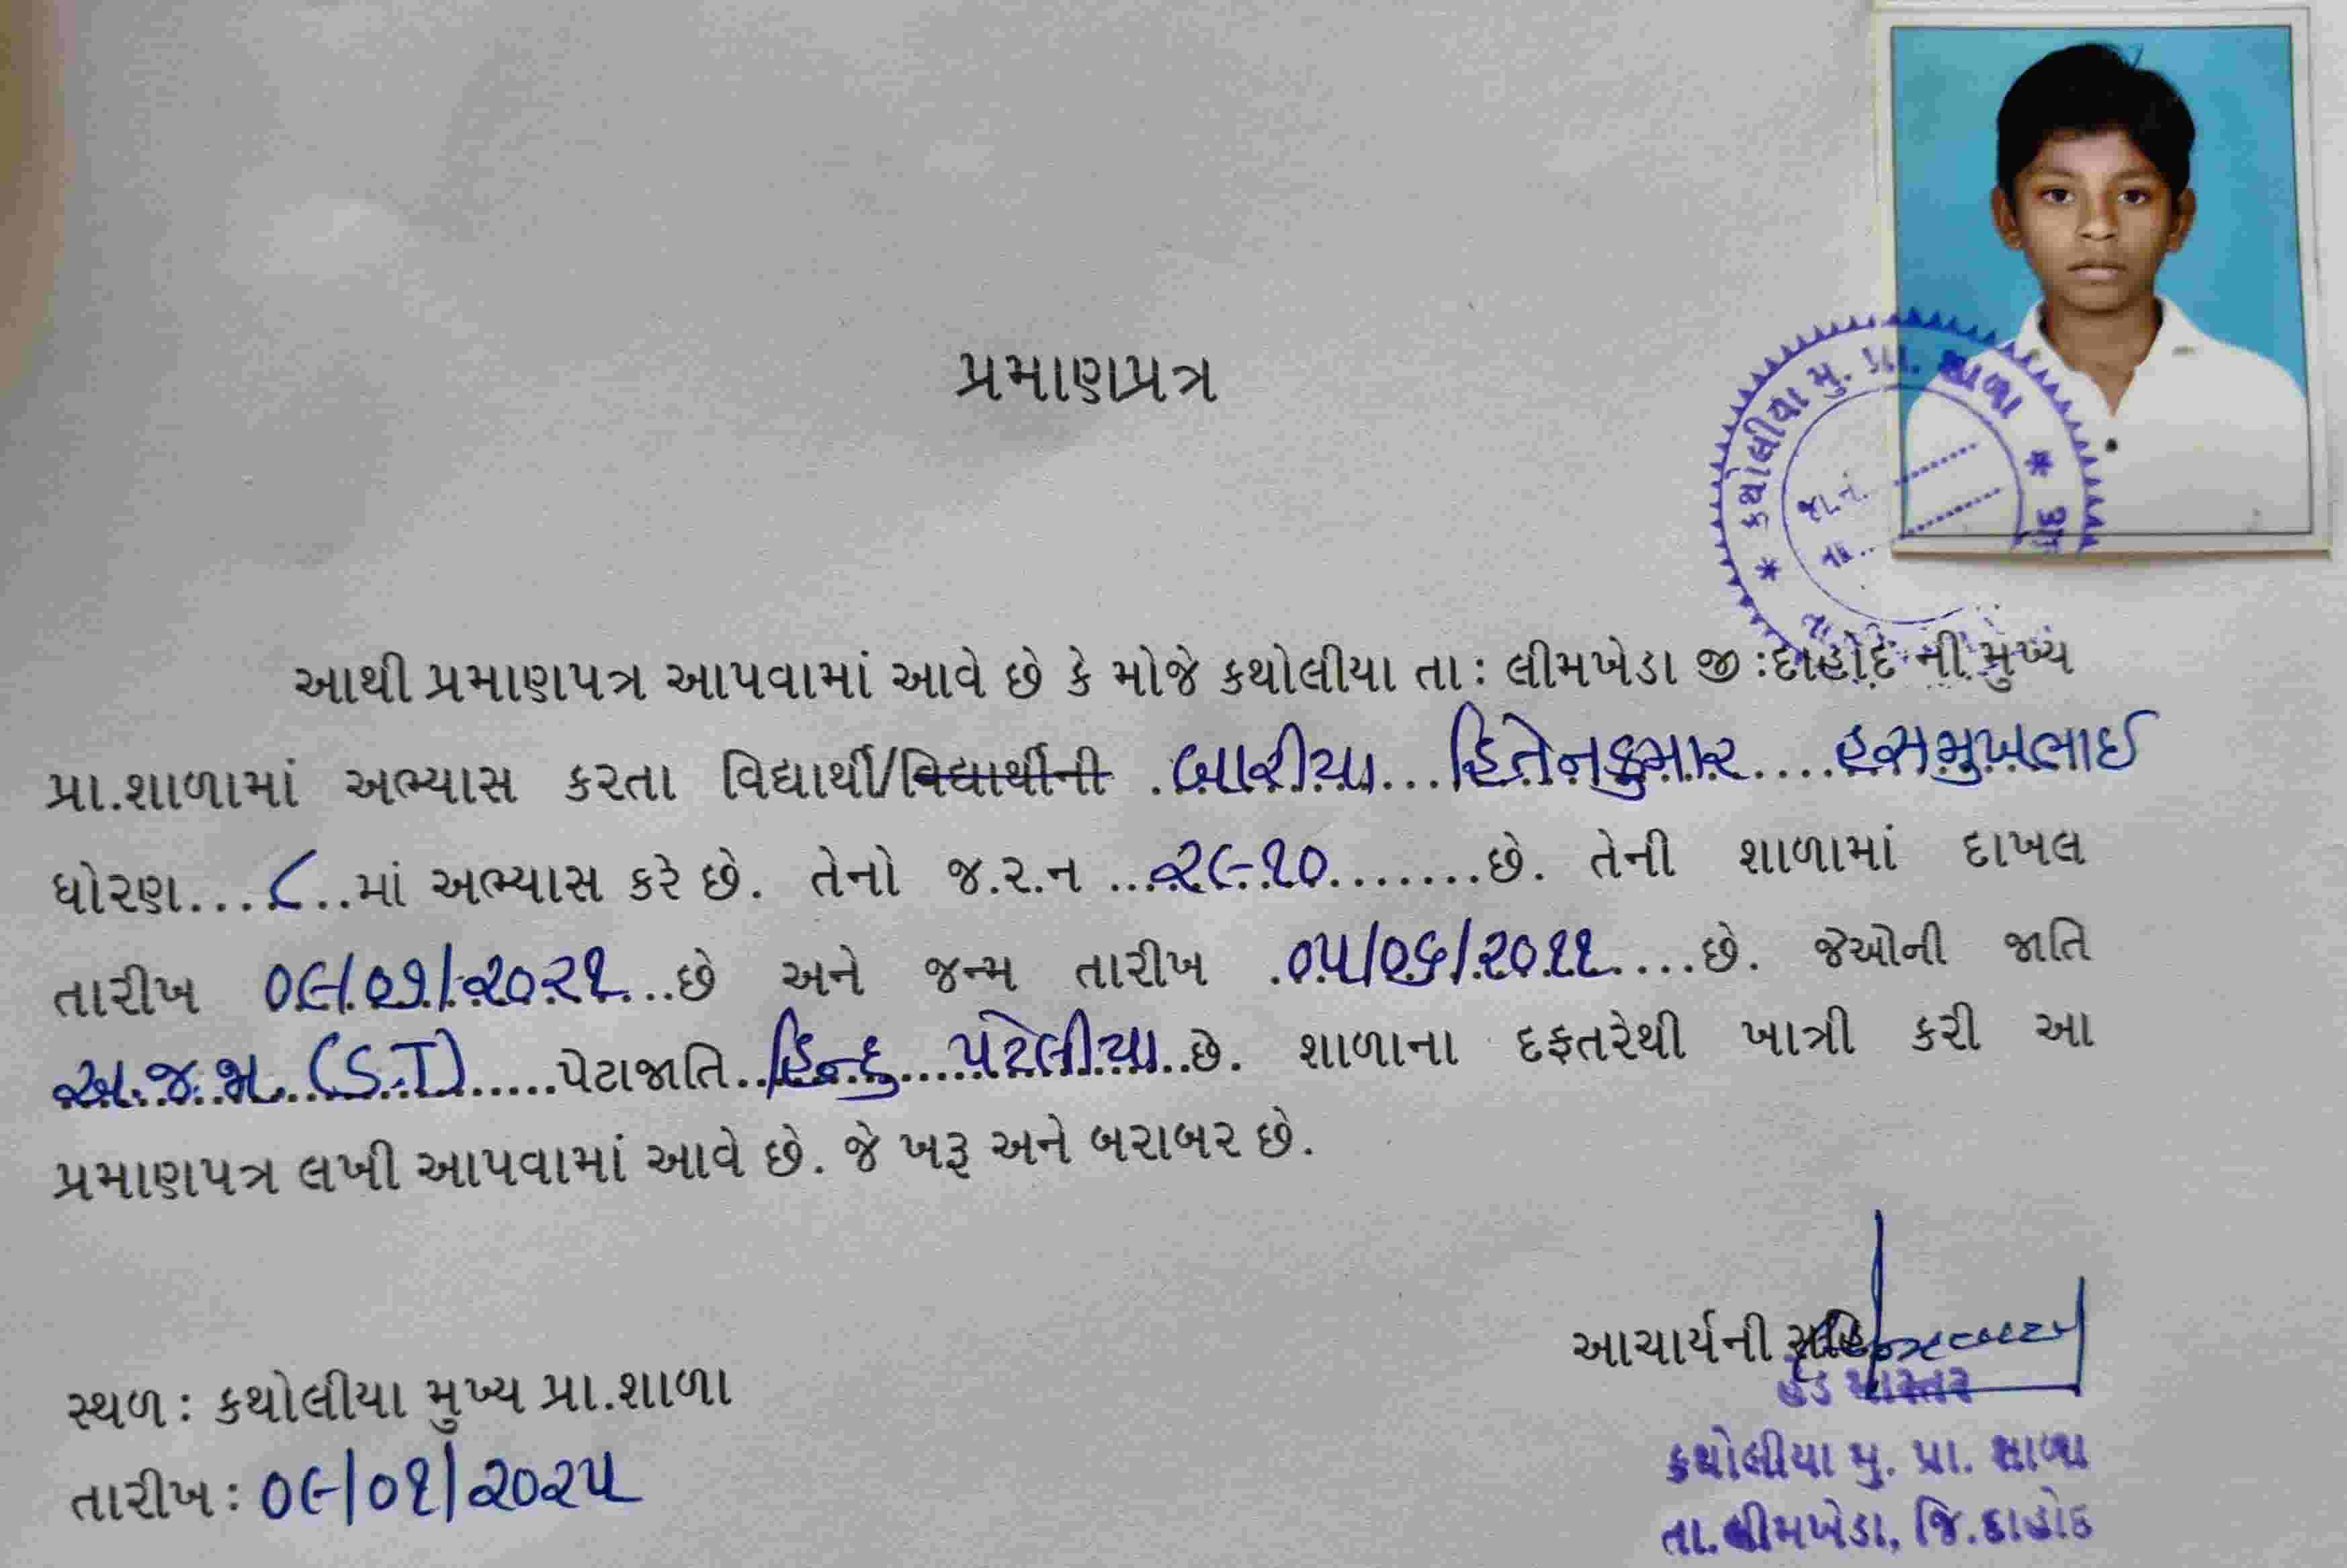 પ્રમાણપત્ર
કથોલીયા મુ. પ્રા. શાળા
જા.નં.
તા.
આથી પ્રમાણપત્ર આપવામાં આવે છે કે મોજે કથોલીયા તા: લીમખેડા જી :દાહોદ ની મુખ્ય
પ્રા.શાળામાં અભ્યાસ કરતા વિદ્યાર્થી/વિદ્યાર્થીની .બારીયા...હિતેનકુમાર....હસમુખભાઈ
ધોરણ....૮..માં અભ્યાસ કરે છે. તેનો જ.ર.ન ...૨૯૧૦........છે. તેની શાળામાં દાખલ
તારીખ ૦૯/૦૭/૨૦૨૧...છે અને જન્મ તારીખ .૦૫/૦૬/૨૦૧૧....છે. જેઓની જાતિ
અ.જ.જા. (S.T)......પેટાજાતિ..હિન્દુ....પટેલીયા..છે. શાળાના દફતરેથી ખાત્રી કરી આ
પ્રમાણપત્ર લખી આપવામાં આવે છે. જે ખરૂ અને બરાબર છે.
આચાર્યની સહિ
હેડ માસ્તર
સ્થળ : કથોલીયા મુખ્ય પ્રા.શાળા
કથોલીયા મુ. પ્રા. શાળા
તારીખ : ૦૯/૦૧/૨૦૨૫
તા.લીમખેડા, જિ.દાહોદ